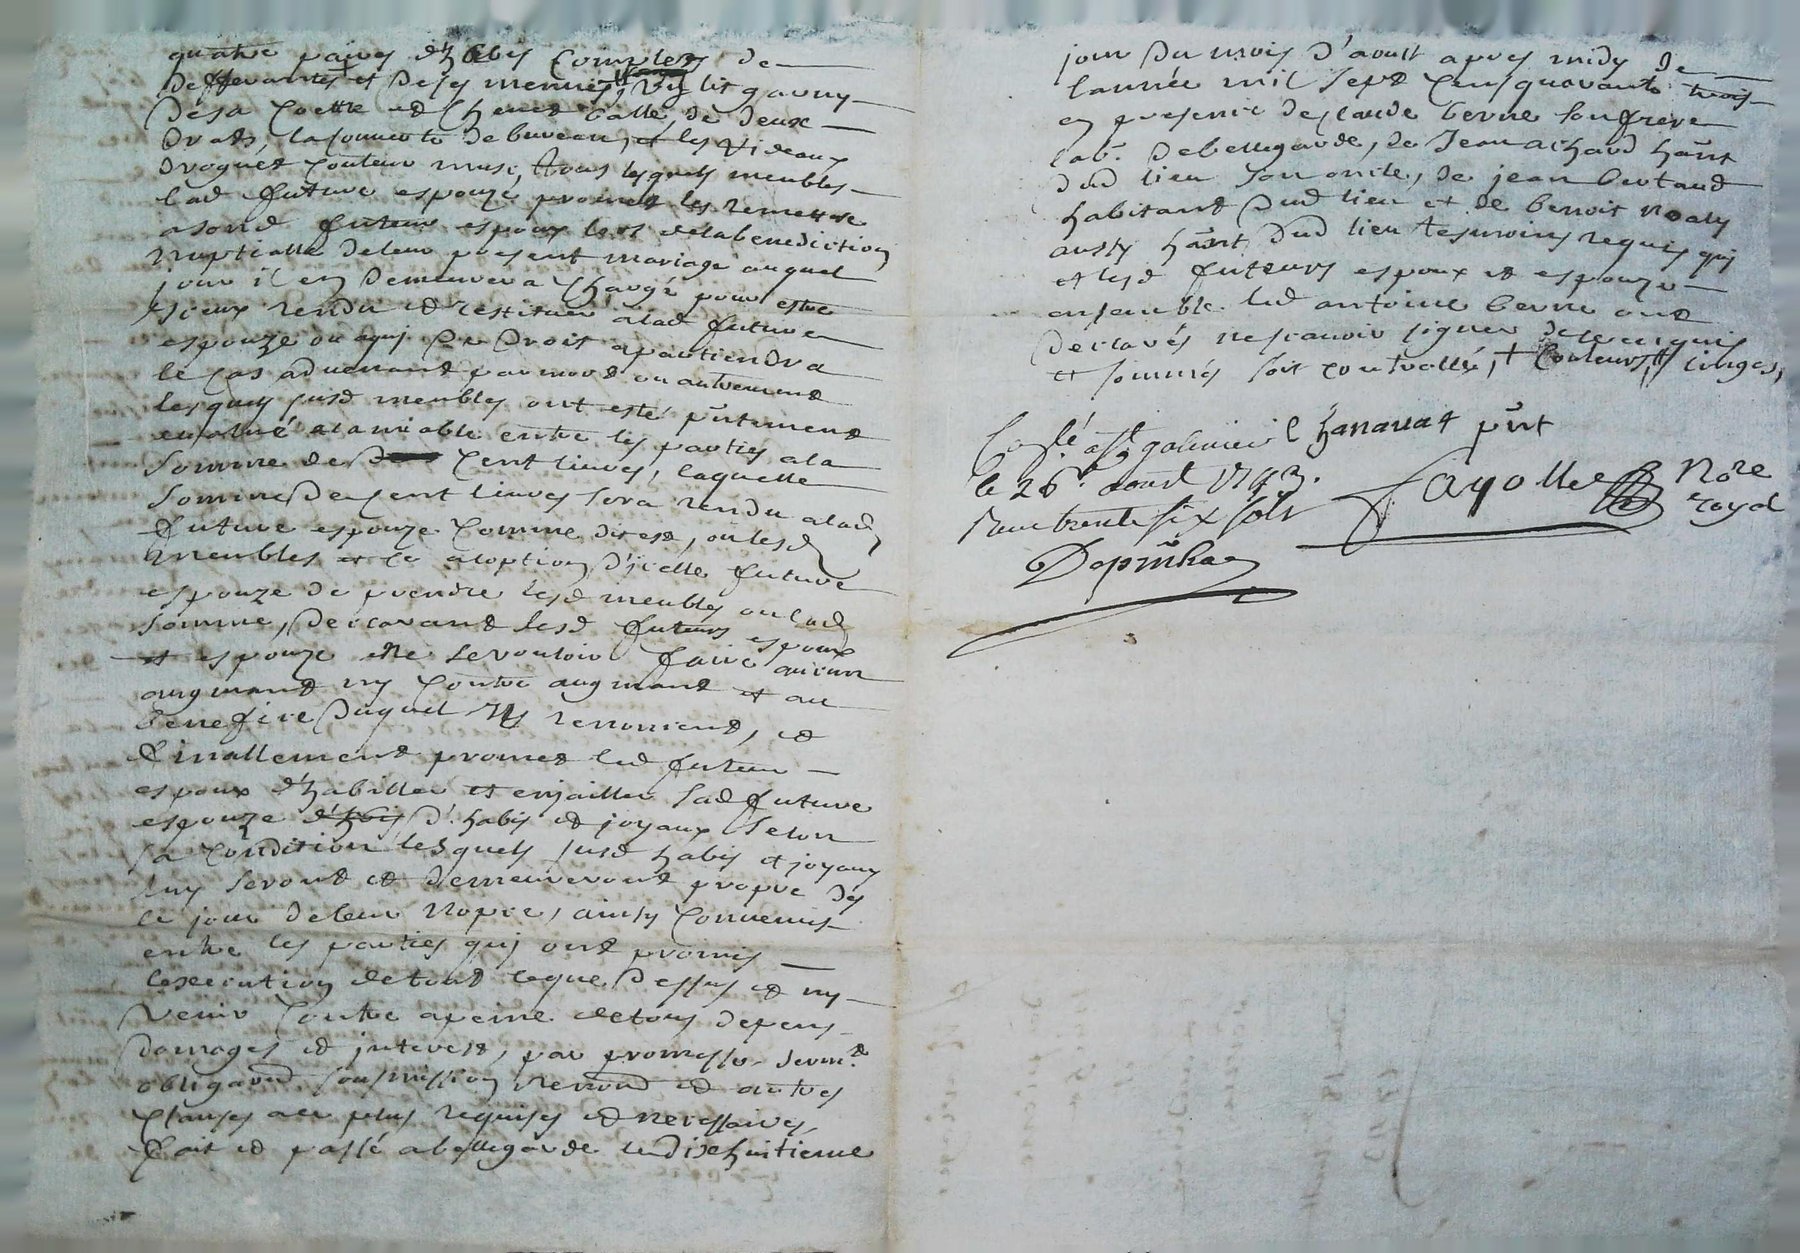 quatre paires d'habis complets de
defferantes et de ses menues, un lit garny
de sa coette et chevet balle de deux
drats, la sommente de bureau, et les rideaux
drogues couleur muse, tous lesquels meubles
lad future espouze promet les remettre
a sond futeur espoux lors de la benediction
nuptialle de leur present mariage auquel
jour il en demeurera chargé pour estre
iceux rendu et restituer a lad future
espouze ou a qui de droit apartiendra
le cas advenant par mort ou autrement
lesquels susd meubles ont esté pntement
evalué a lamiable entre les parties a la
somme de cent livres, laquelle
somme de cent livres sera rendu a lad
future espouze comme dit est, ou lesd
meubles et ce a loption d'icelle future
espouze de prendre lesd meubles ou lad
somme, declarant lesd futeurs espoux
et espouze ne se vouloir faire aucun
augmant ny contre augmant et au
benefice duquel ils renoncent, et
finallement promet led futeur
espoux d'habiller et enjailler sad future
espouze d'habis d'habis et joyaux selon
sa condition lesquels susd habis et joyaux
luy seront et demeureront propre dés
le jour de leur nopce, ainsy convenus
entre les parties qui ont promis
lexecution de tout ce que dessus et ny
venir contre a peine de tous depens
domages et interest, par promesse serm.t
obligaond soumission renond et autres
clauses a ce plus requises et necessaires,
fait et passé a bellegarde le dixhuitieme
jour du mois d'aoust apres midy de
lannée mil sept cens quarante trois
en presence de claude berne son frere
lab.r de bellegarde, de Jean achard hant
dud lieu son oncle, de jean bertaud
habitant dud lieu et de benoit Noaly
aussy hant dud lieu tesmoins requis qui
et lesd futeurs espoux et espouze
ensemble led antoine berne ont
declarés ne scavoir signer de ce enquis
et sommés soit controllé, + couleurs, // linges,
Con.lé a St galmier l hanauat pnt
le 26.e aoust 1743.
Reçu trente six sols
Fayolle Nore
royal
Depinhac